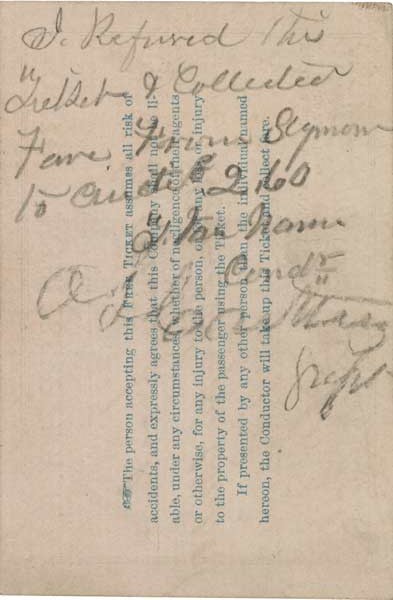 I Refused this
"Ticket & Collected
Fare From Seymour
to 2.60
Van Name
Condr
☞ The person accepting this FREE TICKET assumes all risk of
accidents, and expressly agrees that this Company shall not be li-
able, under any circumstances, whether of negligence of their agents
or otherwise, for any injury to the person, or for any loss or injury
to the property of the passenger using the Ticket.
If presented by any other person than the individual named
hereon, the Conductor will take up this Ticket and collect fare.